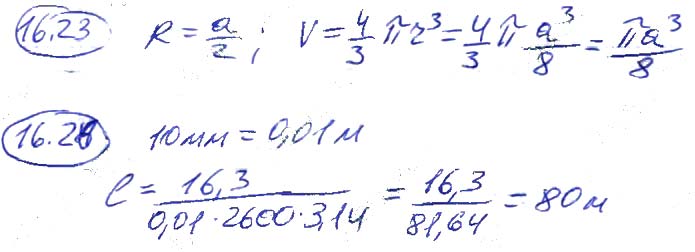 16.23 R = a/2; V = 4/3 πr³ = 4/3 π a³/8 = πa³/8
16.28 10мм = 0,01м
l = 16,3/(0,01·2600·3,14) = 16,3/81,64 = 80м